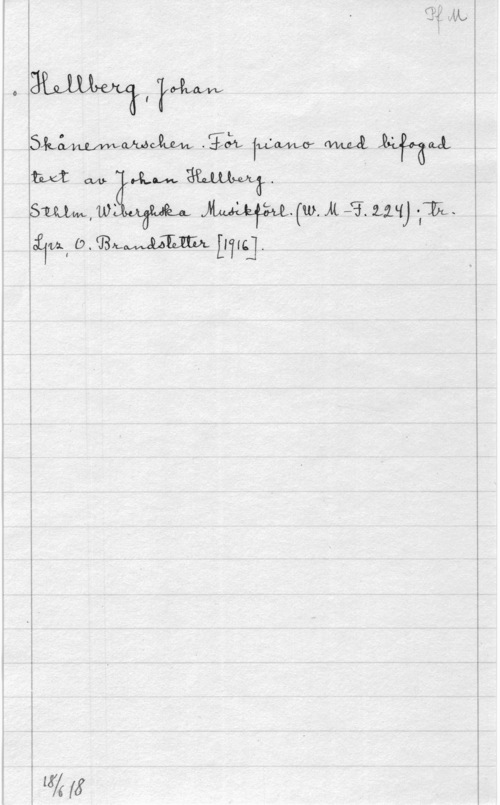 Pf M
Hellberg, Johan
Skånemarschen. För piano med bifogad
text av Johan Hellberg.
Sthlm, Wiberghska Musikförl. (W. M-F. 224); tr.
Lpz, O. Brandstetter [1916].
18/6 18